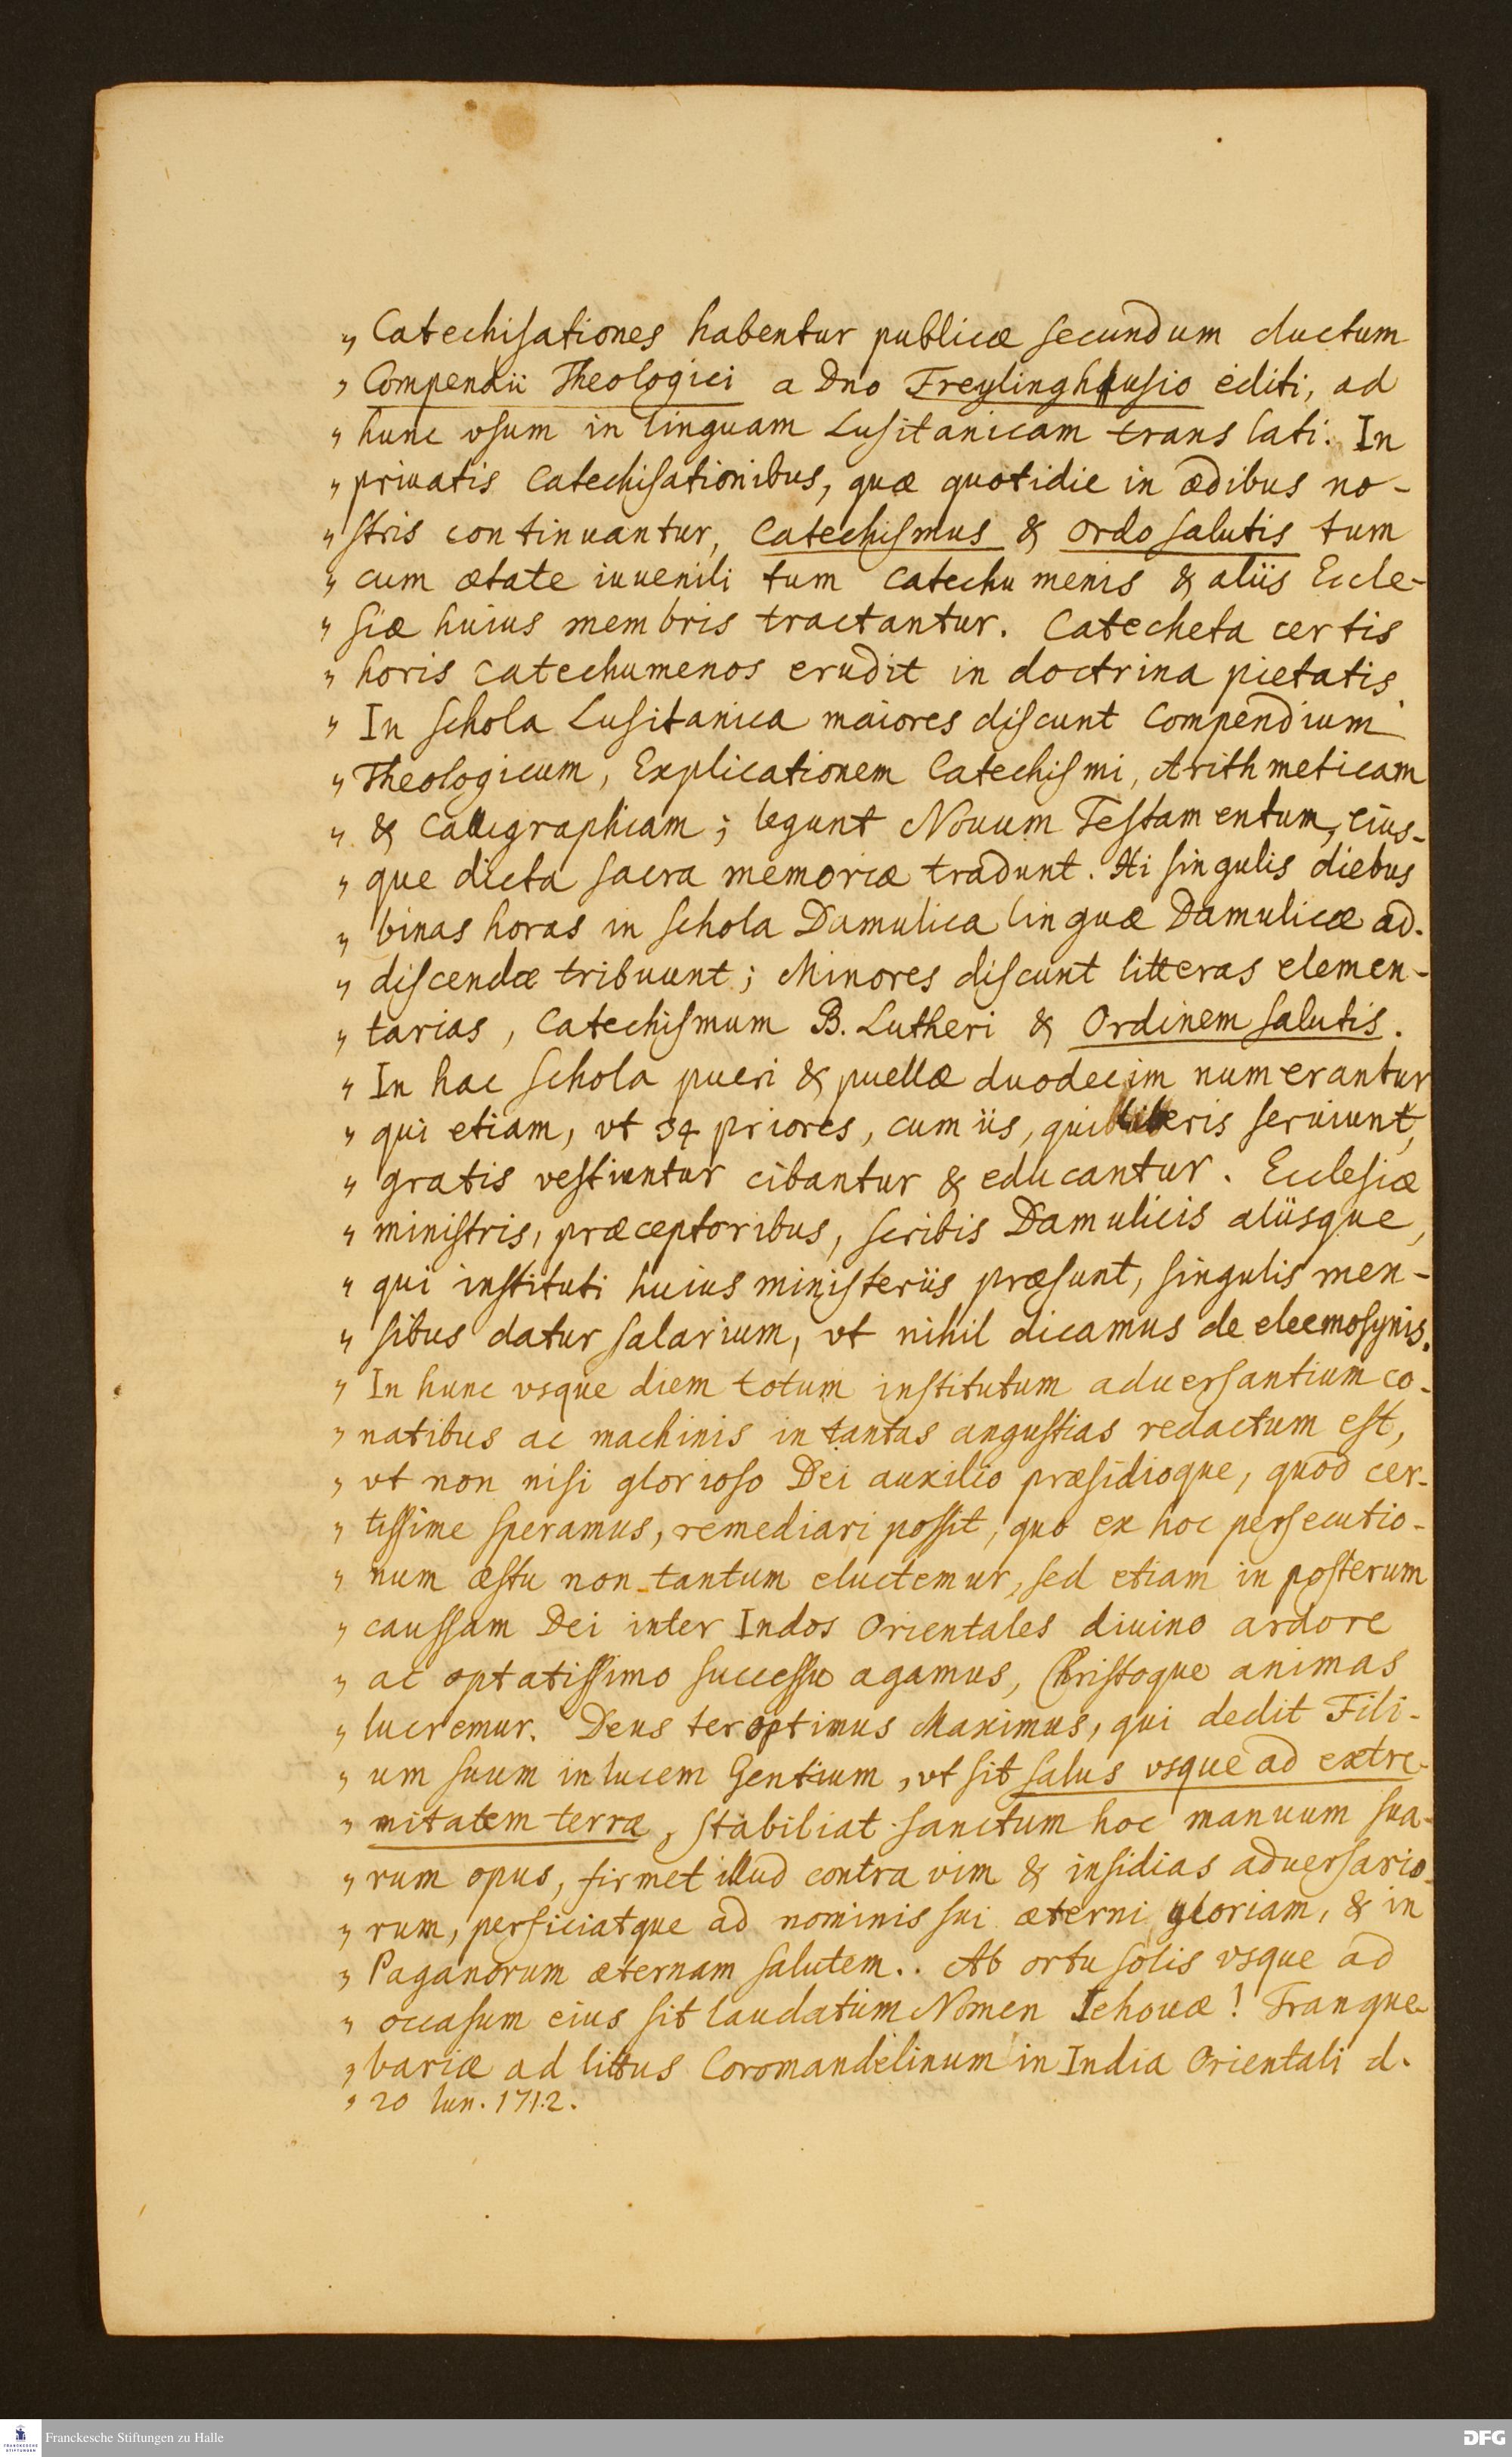 „ Catechisationes habentur publicæ secundum ductum
„ Compendii Theologici a Dno Freylinghausio editi, ad
„ hunc vsum in linguam Lusitanicam trans lati. In
„ priuatis Catechisationibus, quæ quotidie in ædibus no-
„ stris continuantur, Catechismus & ordo salutis tum
„ cum ætate iuuenili tum Catechumenis & aliis Eccle-
„ siæ huius membris tractantur. Catecheta certis
„ horis Catechumenos erudit in doctrina pietatis.
„ In schola Lusitanica maiores discunt Compendium
„ Theologicum, Explicationem Catechismi, Arithmeticam
„ & Calligraphiam; legunt Nouum Testamentum, eius-
„ que dicta sacra memoriæ tradunt. Hi singulis diebus
„ binas horas in schola Damulica linguæ Damulicæ ad-
„ discendæ tribuunt; Minores discunt litteras elemen-
„ tarias, Catechismum B. Lutheri & Ordinem salutis.
„ In hac schola pueri & puellæ duodecim numerantur
„ qui etiam, vt 54 priores, cum iis, qui liberis seruiunt,
„ gratis vestiuntur cibantur & educantur. Ecclesiæ
„ ministris, præceptoribus, scribis Damulicis aliisque,
„ qui instituti huius ministeriis præsunt, singulis men-
„ sibus datur salarium, vt nihil dicamus de eleemosynis.
„ In hunc vsque diem totum institutum aduersantium co-
„ natibus ac machinis in tantas angustias redactum est,
„ vt non nisi glorioso Dei auxilio præsidioque, quod cer-
„ tissime speramus, remediari possit, quo ex hoc persecutio-
„ num æstu non tantum eluctemur, sed etiam in posterum
„ caussam Dei inter Indos Orientales diuino ardore
„ ac optatissimo successu agamus, Christoque animas
„ lucremur. Deus ter optimus Maximus, qui dedit Fili-
„ um suum in lucem Gentium, vt sit salus vsque ad extre-
„ mitatem terræ, stabiliat sanctum hoc manuum sua-
„ rum opus, firmet illud contra vim & insidias aduersario-
„ rum, perficiatque ad nominis sui æterni gloriam, & in
„ Paganorum æternam salutem.. Ab ortu solis vsque ad
„ occasum eius sit laudatum Nomen Iehouæ! Tranque-
„ bariæ ad littus Coromandelinum in India Orientali d.
„ 20 Iun. 1712.
Franckesche Stiftungen zu Halle
DFG